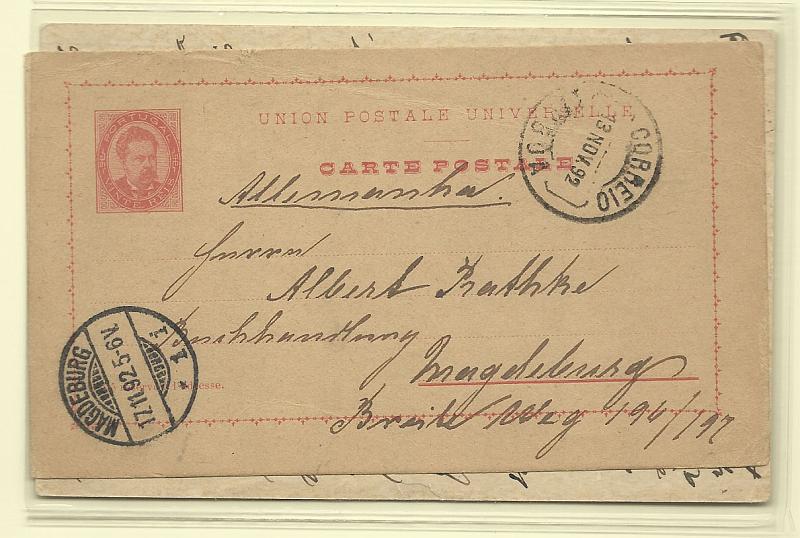 PORTUGAL
VINTE REIS
UNION POSTALE UNIVERSELLE
CARTE POSTALE
CORREIO
13 NOV. 92
Allemanha.
Herrn
Albert Rathke
Buchhandlung
Magdeburg
Breite Weg 196/197
MAGDEBURG
17.11.92.5-6V.
l'adresse.